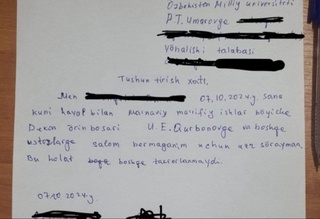 Oʻzbekiston Milliy universiteti
P.T. Umarovga
Yoʻnalishi talabasi
Tushuntirish xati.
Men 07.10.2024.y sana
kuni bilan Maʼnaviy maʼrifiy ishlar boʻyicha
Dekan oʻrinbosari U.E. Qurbonovga va boshqa
ustozlarga salom bermaganim uchun uzr soʻrayman.
Bu holat boshqa takrorlanmaydi.
07.10.2024.y